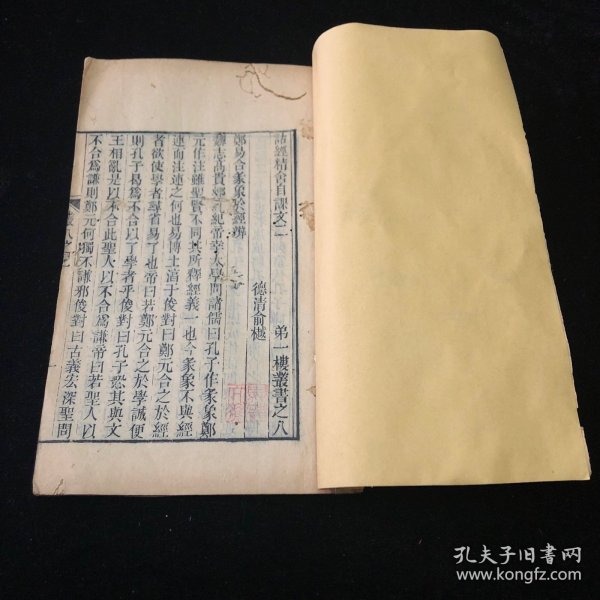 詁經精舍自課文二　第一樓叢書之八
德清俞樾
鄭易合彖象於經辨
魏志高貴鄉公紀帝幸太學問諸儒曰孔子作彖象鄭
元作注雖聖賢不同其所釋經義一也今彖象不與經
連而注連之何也易博士淳于俊對曰鄭元合之於經
者欲使學者尋省易了也帝曰若鄭元合之於學誠便
則孔子曷爲不合以了學者乎俊對曰孔子恐其與文
王相亂是以不合此聖人以不合爲謙帝曰若聖人以
不合爲謙則鄭元何獨不謙邪俊對曰古義宏深聖問
孔夫子旧书网
www.kongfz.com